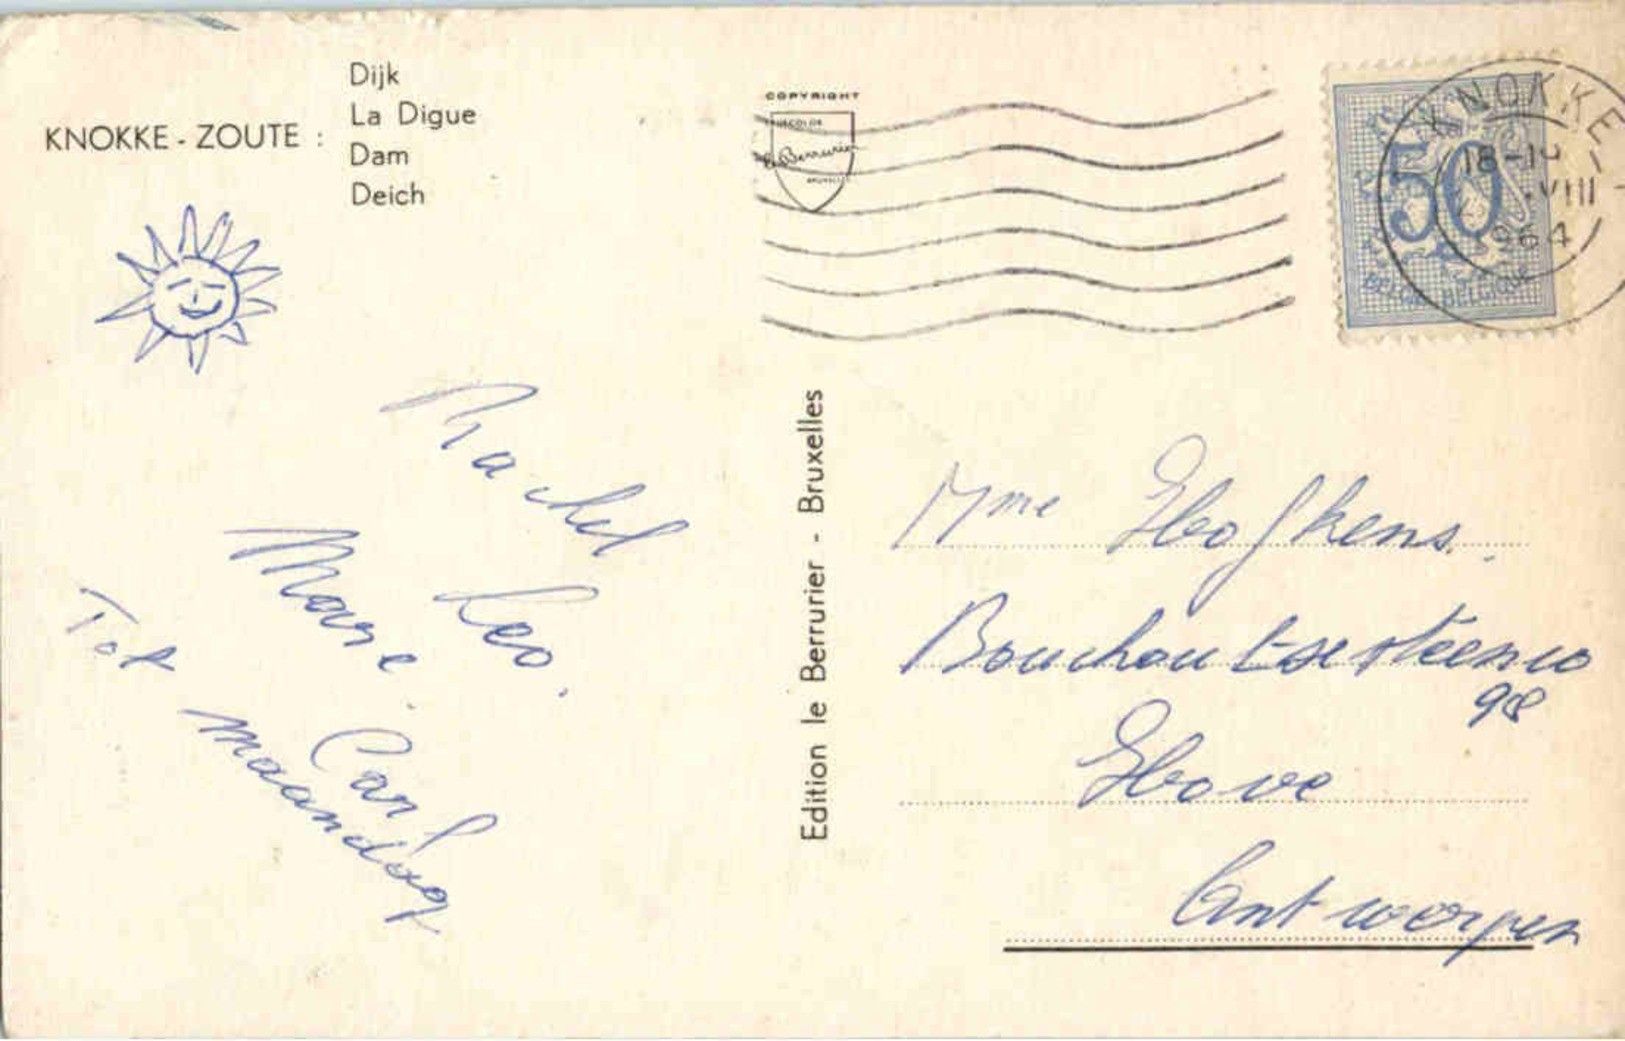 KNOKKE - ZOUTE :
Dijk
La Digue
Dam
Deich
Rachel
Leo.
Marie
Carl
Tot maandag
Edition le Berrurier - Bruxelles
COPYRIGHT
Berrurier
BRUXELLES
KNOKKE
18-19
VIII
1964
50
BELGIE BELGIQUE
Mme Hofkens.
Bouchoutsesteenw
98
Hove
Antwerpen